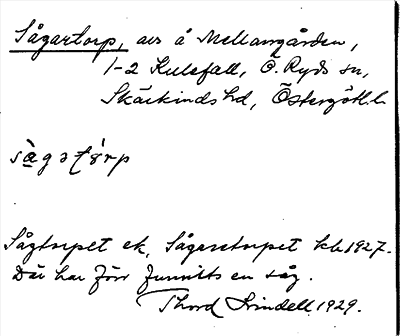 Sågartorp, avs å Mellangården,
1-2 Kulefall, Ö. Ryds sn,
Skärkinds hd, Östergötl. l.
sàgatórp
Sågtorpet ek, Sågaretorpet kb 1927.
Där har förr funnits en såg.
Thord Lindell 1929.